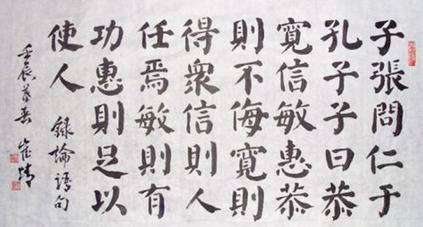 子張問仁于
孔子子曰恭
寬信敏惠恭
則不侮寬則
得衆信則人
任焉敏則有
功惠則足以
使人 錄論語句
壬辰 春 崔